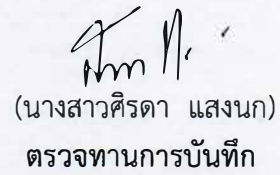 (นางสาวศิรดา แสงนก)
ตรวจทานการบันทึก